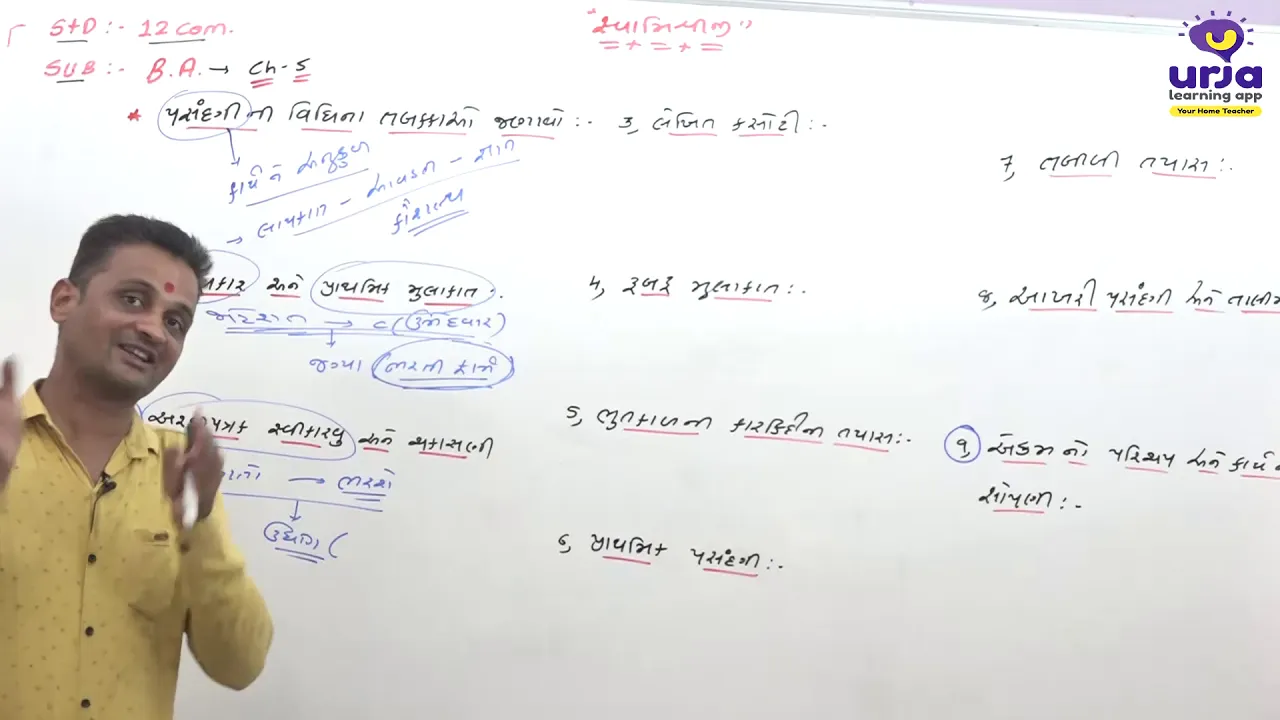 STD :- 12 com.
SUB :- B.A. → Ch - 5
* પસંદગી ની વિધિના તબક્કાઓ જણાવો :-
કાર્ય ને અનુકુળ
→ લાયકાત - આવડત - જ્ઞાન
કૌશલ્ય
કાર અને પ્રાથમિક મુલાકાત :
→ (ઉમેદવાર)
જગ્યા ભરતી કાર્ય
અરજીપત્રક સ્વીકારવુ અને ચકાસણી
→ ભરશે
3, લેખિત કસોટી :-
૪, રૂબરૂ મુલાકાત :-
5, ભુતકાળની કારકિર્દીની તપાસ :-
૬, પ્રાથમિક પસંદગી :-
7, તબીબી તપાસ :-
૮, આખરી પસંદગી અને તાલીમ
૧, એકમ નો પરિચય અને કાર્ય ન
સોંપણી :-
urja
learning app
"Your Home Teacher"